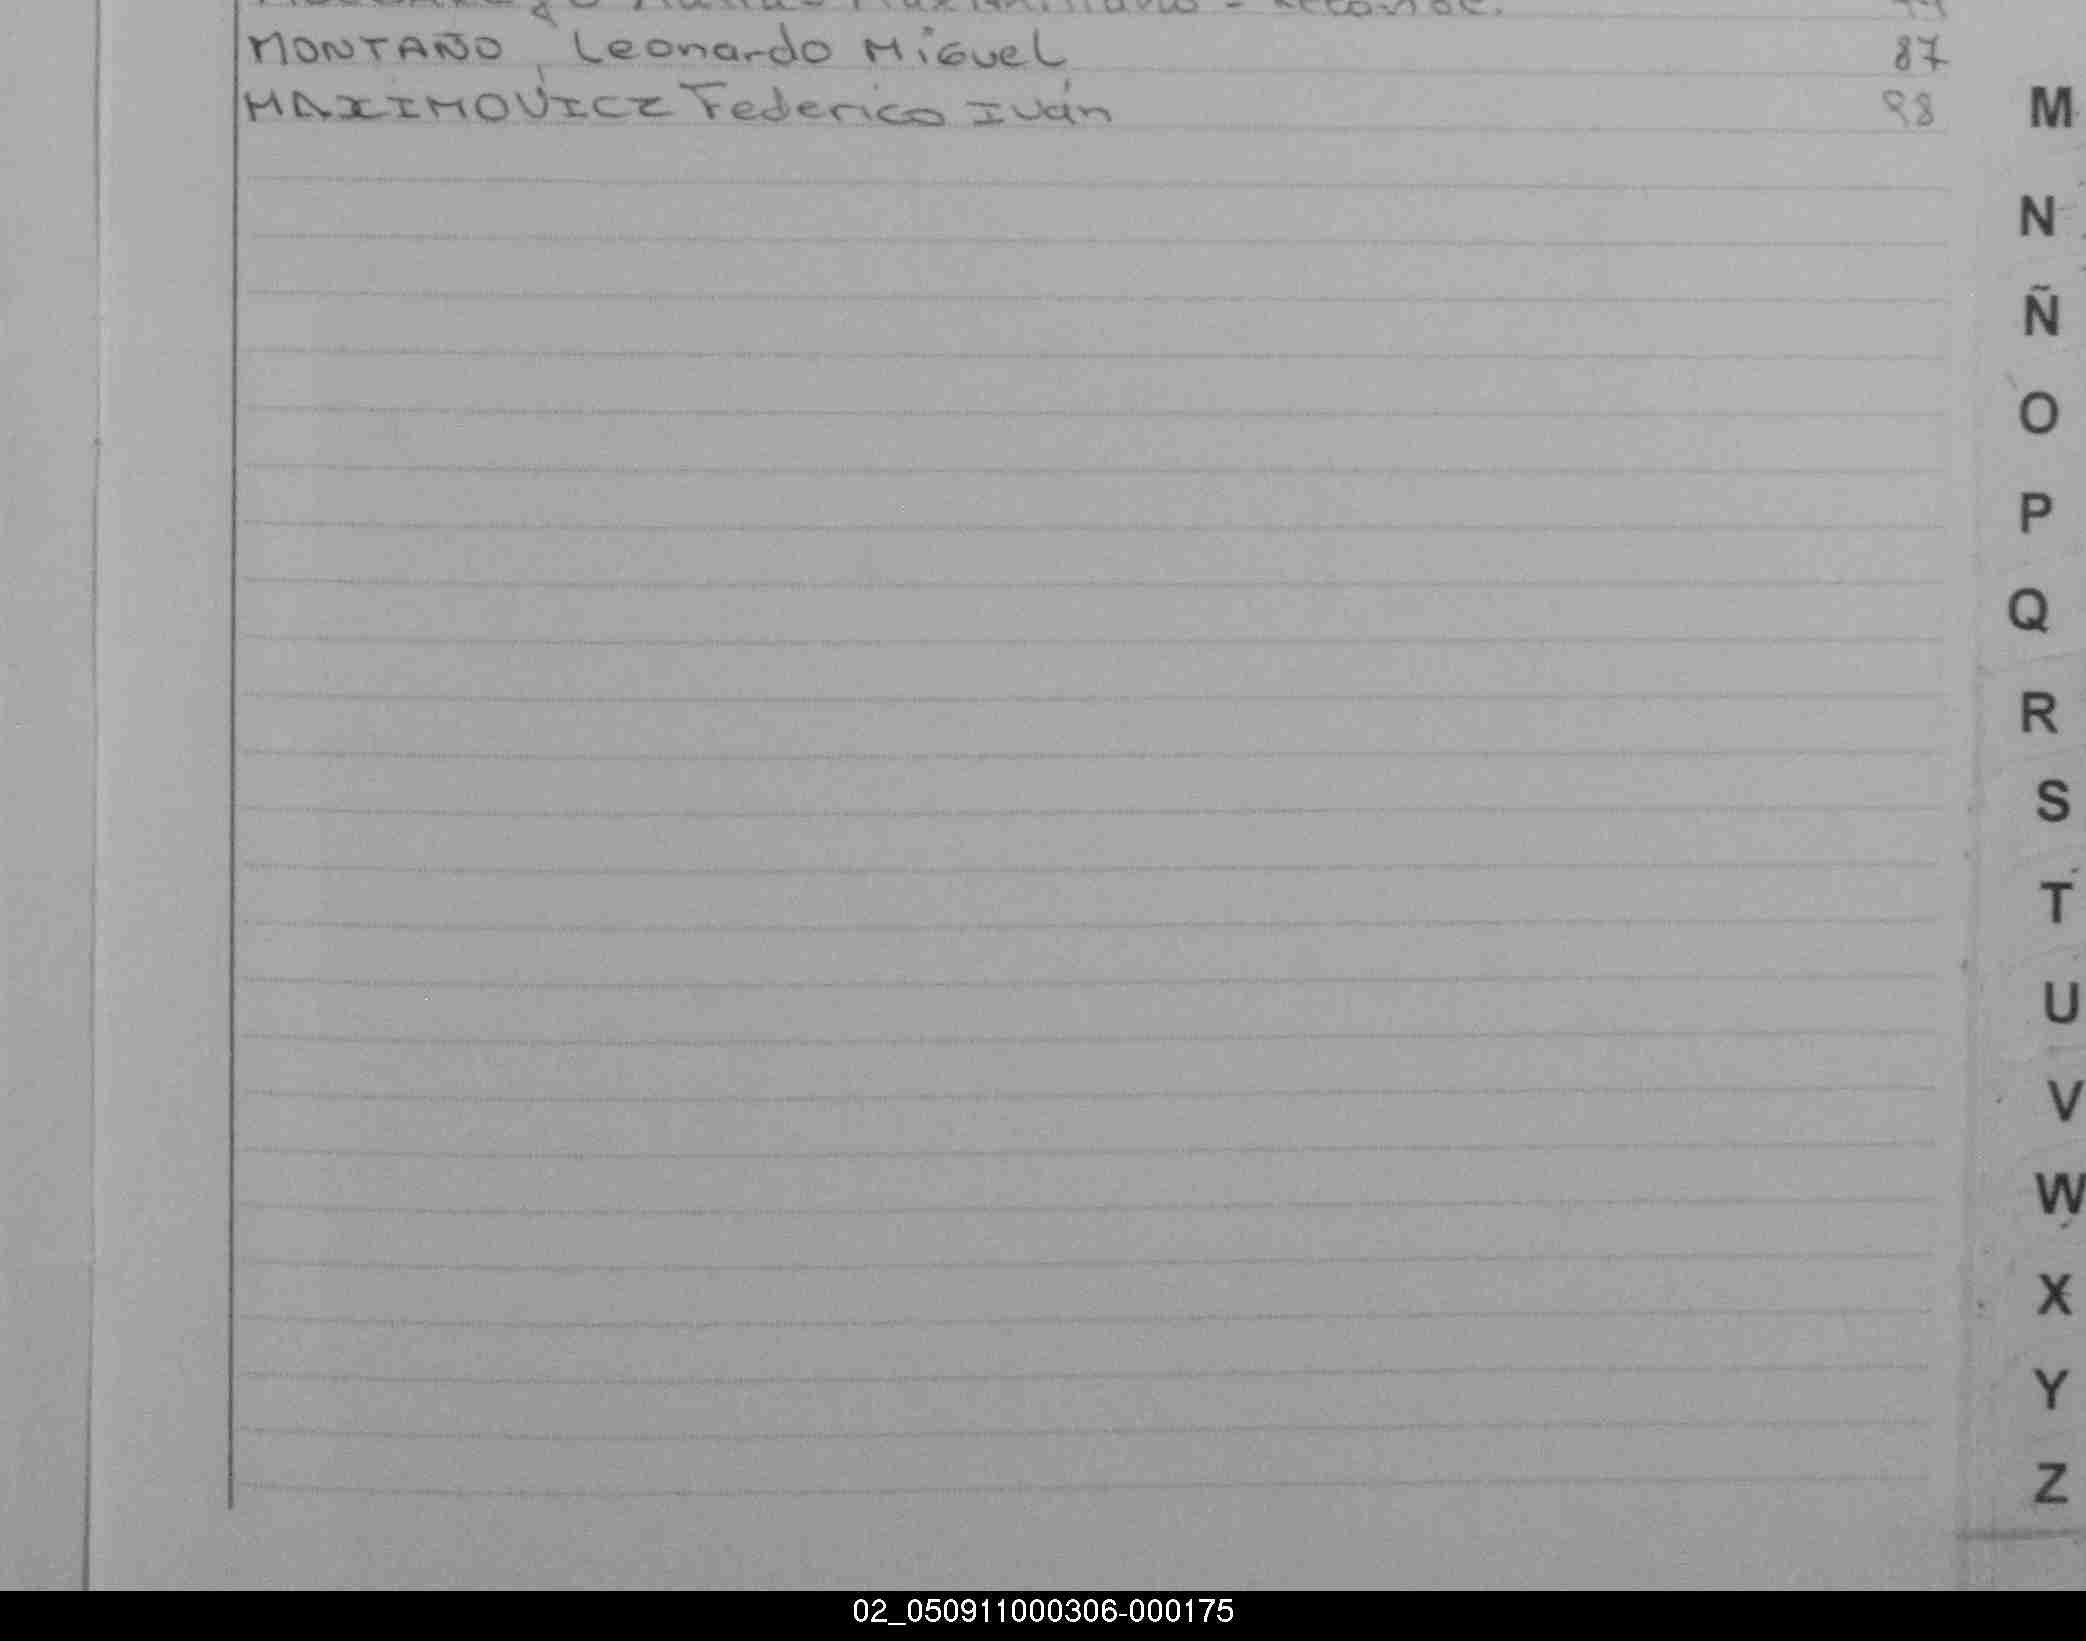 Maximiliano - Reconoc.
MONTAÑO, Leonardo Miguel 87
MAXIMOVICZ Federico Iván 98
M
N
Ñ
O
P
Q
R
S
T
U
V
W
X
Y
Z
02_050911000306-000175